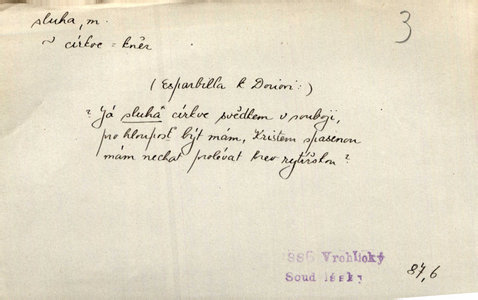 sluha, m.
3
~ církve = kněz
(Esparbilla k Dorioi:)
"Já sluha církve svědkem v souboji,
pro hloupost být mám, Kristem spasenou
mám nechat prolévat krev rytířskou?
886 Vrchlický
Soud lásky
84,6